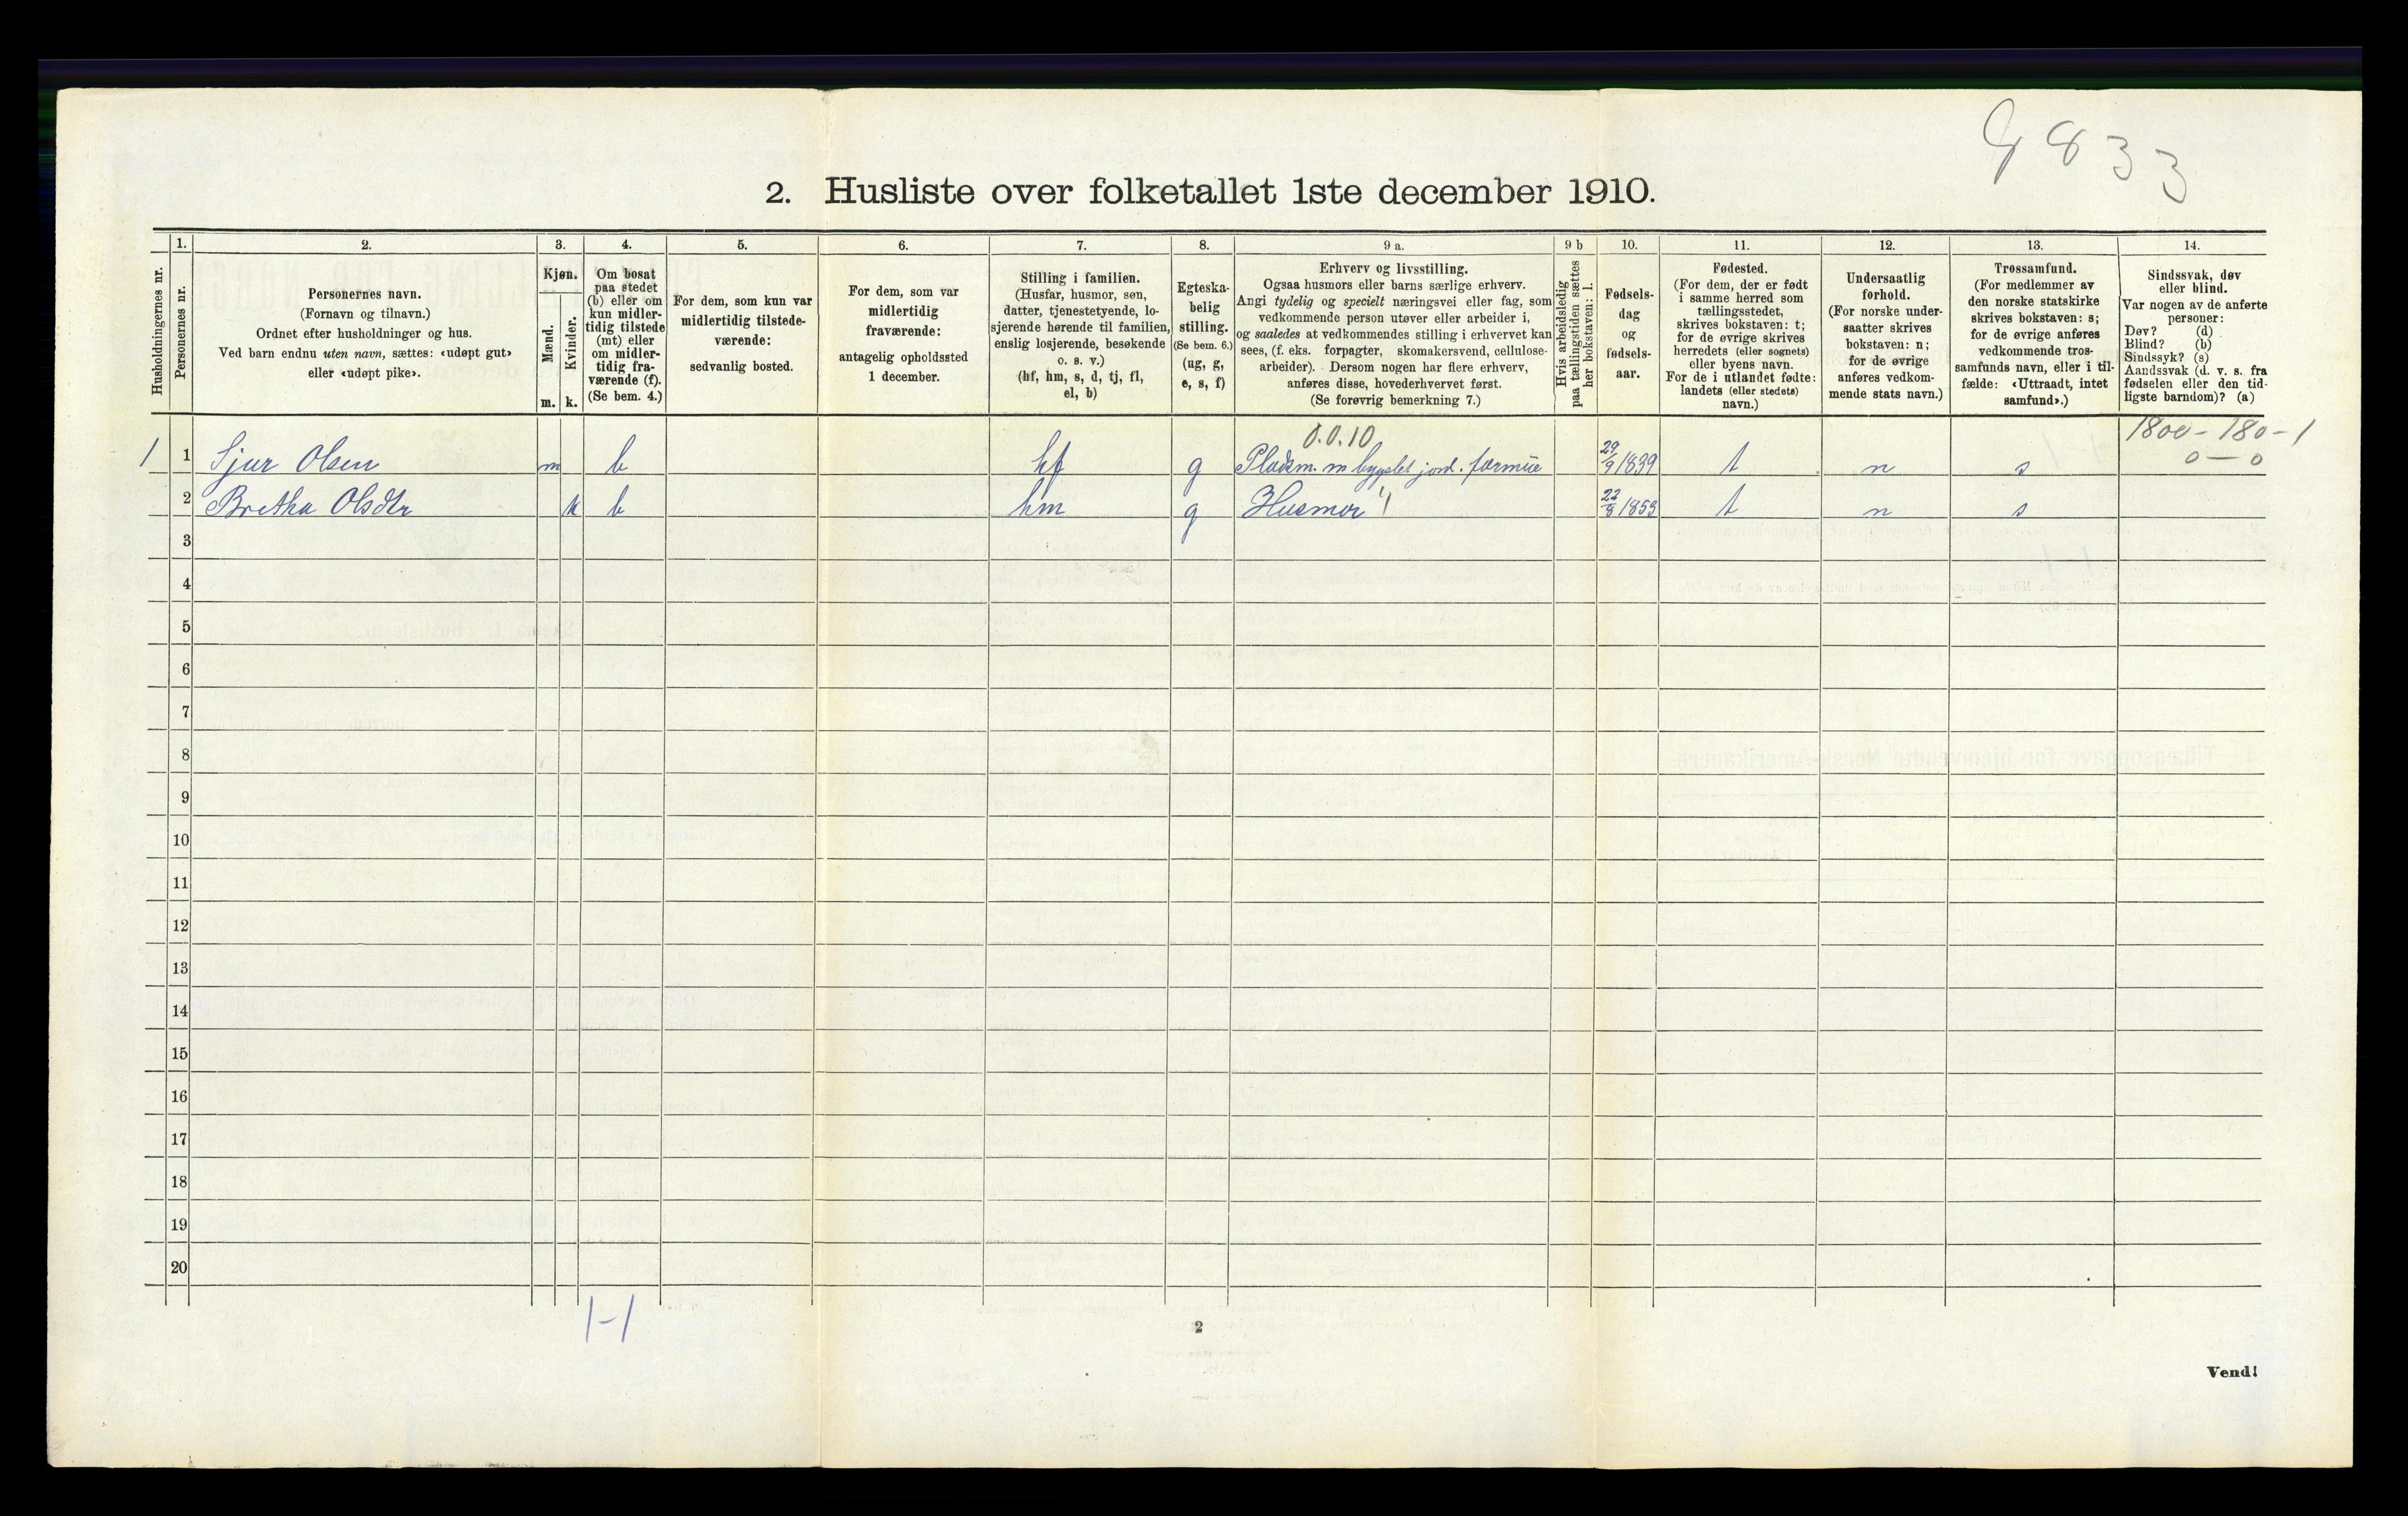 G 8 3 3
2. Husliste over folketallet 1ste december 1910.
Husholdningernes nr.
1.
Personernes nr.
2.
Personernes navn.
(Fornavn og tilnavn.)
Ordnet efter husholdninger og hus.
Ved barn endnu uten navn, sættes: «udøpt gut»
eller «udøpt pike».
3.
Kjøn.
Mænd.
Kvinder.
m. k.
4.
Om bosat
paa stedet
(b) eller om
kun midler-
tidig tilstede
(mt) eller
om midler-
tidig fra-
værende (f).
(Se bem. 4.)
5.
For dem, som kun var
midlertidig tilstede-
værende:
sedvanlig bosted.
6.
For dem, som var
midlertidig
fraværende:
antagelig opholdssted
1 december.
7.
Stilling i familien.
(Husfar, husmor, søn,
datter, tjenestetyende, lo-
sjerende hørende til familien,
enslig losjerende, besøkende
o. s. v.)
(hf, hm, s, d, tj, fl,
el, b)
8.
Egteska-
belig
stilling.
(Se bem. 6.)
(ug, g,
e, s, f)
9 a.
Erhverv og livsstilling.
Ogsaa husmors eller barns særlige erhverv.
Angi tydelig og specielt næringsvei eller fag, som
vedkommende person utøver eller arbeider i,
og saaledes at vedkommendes stilling i erhvervet kan
sees, (f. eks. forpagter, skomakersvend, cellulose-
arbeider). Dersom nogen har flere erhverv,
anføres disse, hovederhvervet først.
(Se forøvrig bemerkning 7.)
9 b
Hvis arbeidsledig
paa tællingstiden sættes
her bokstaven: l.
10.
Fødsels-
dag
og
fødsels-
aar.
11.
Fødested.
(For dem, der er født
i samme herred som
tællingsstedet,
skrives bokstaven: t;
for de øvrige skrives
herredets (eller sognets)
eller byens navn.
For de i utlandet fødte:
landets (eller stedets)
navn.)
12.
Undersaatlig
forhold.
(For norske under-
saatter skrives
bokstaven: n;
for de øvrige
anføres vedkom-
mende stats navn.)
13.
Trossamfund.
(For medlemmer av
den norske statskirke
skrives bokstaven: s;
for de øvrige anføres
vedkommende tros-
samfunds navn, eller i til-
fælde: «Uttraadt, intet
samfund».)
14.
Sindssvak, døv
eller blind.
Var nogen av de anførte
personer:
Døv? (d)
Blind? (b)
Sindssyk? (s)
Aandssvak (d. v. s. fra
fødselen eller den tid-
ligste barndom)? (a)
0.0.10 1800 - 180 - 1
1 1 Sjur Olsen m b hf g Pladsm. m bygslet jord. formue 29/9 1839 t n s 0 — 0
2 Bretha Olsdtr k b hm g Husmor 22/8 1853 t n s
3
4
5
6
7
8
9
10
11
12
13
14
15
16
17
18
19
20
1-1
2
Vend!